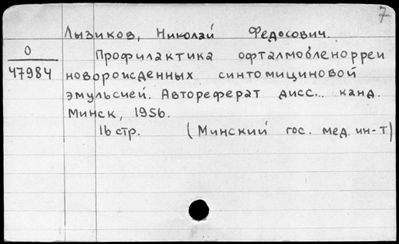 7
Лызиков, Николай Федосович.
О
47984
Профилактика офталмобленорреи
новорожденных синтомициновой
эмульсией. Автореферат дисс... канд.
Минск, 1956.
16 стр. (Минский гос. мед. ин-т)